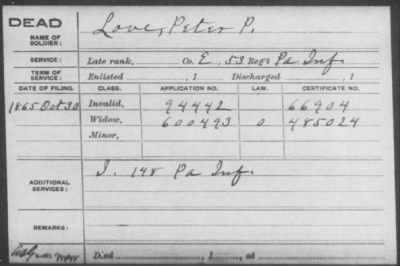 DEAD
NAME OF SOLDIER: Love, Peter P.
SERVICE: Late rank, Co. E, 53 Reg't Pa Inf.
TERM OF SERVICE: Enlisted , 1 Discharged , 1
DATE OF FILING. CLASS. APPLICATION NO. CERTIFICATE NO.
1865 Oct 30 Invalid, 94442 66904
Widow, 600493 O 485024
Minor,
ADDITIONAL SERVICES: I. 148 Pa Inf.
REMARKS:
Died , 1 , at